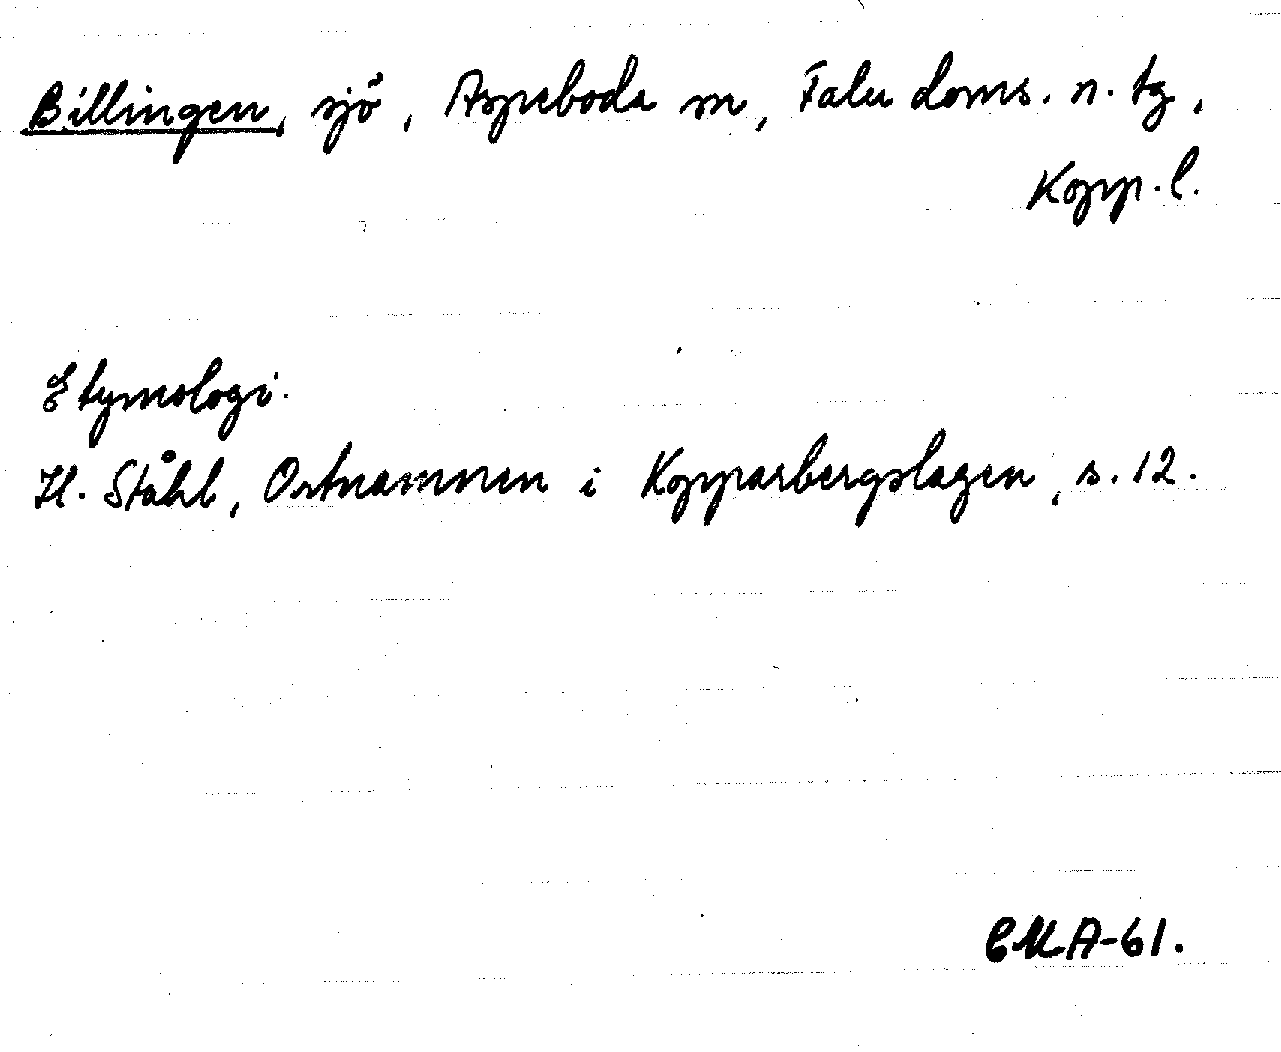 Billingen, sjö, Aspeboda sn, Falu doms. n. tg,
Kopp. l.
Etymologi.
H. Ståhl, Ortnamnen i Kopparbergslagen, s. 12.
CMA-61.